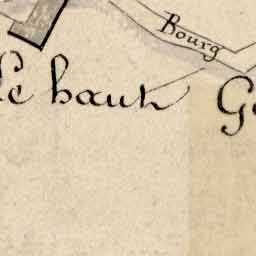 Bourg
le haut G